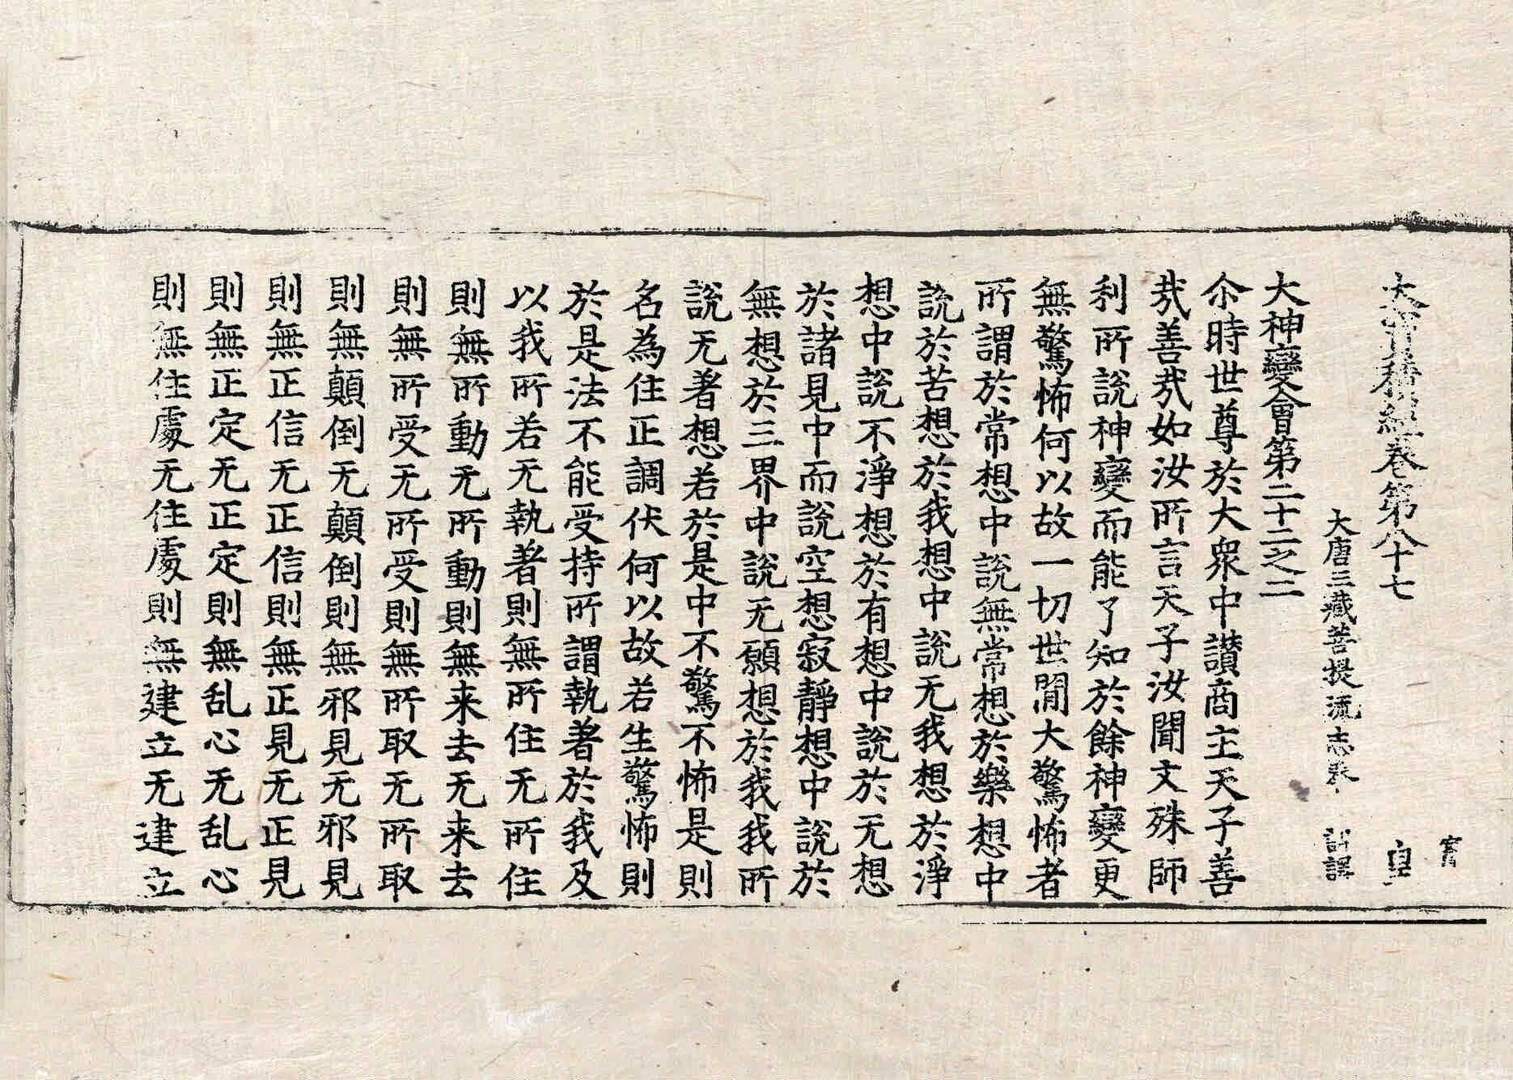 大寳積經卷第八十七
皇
大唐三藏菩提流志奉 詔譯
大神變會第二十二之二
尒時世尊於大衆中讃商主天子善
㢤善㢤如汝所言天子汝聞文殊師
利所說神變而能了知於餘神變更
無驚怖何以故一切世閒大驚怖者
所謂於常想中說無常想於樂想中
說於苦想於我想中說无我想於淨
想中說不淨想於有想中說於无想
於諸見中而說空想寂靜想中說於
無想於三界中說无願想於我我所
說无著想若於是中不驚不怖是則
名為住正調伏何以故若生驚怖則
於是法不能受持所謂執著於我及
以我所若无執著則無所住无所住
則無所動无所動則無来去无来去
則無所受无所受則無所取无所取
則無顛倒无顛倒則無邪見无邪見
則無正信无正信則無正見无正見
則無正定无正定則無乱心无乱心
則無住處无住處則無建立无建立